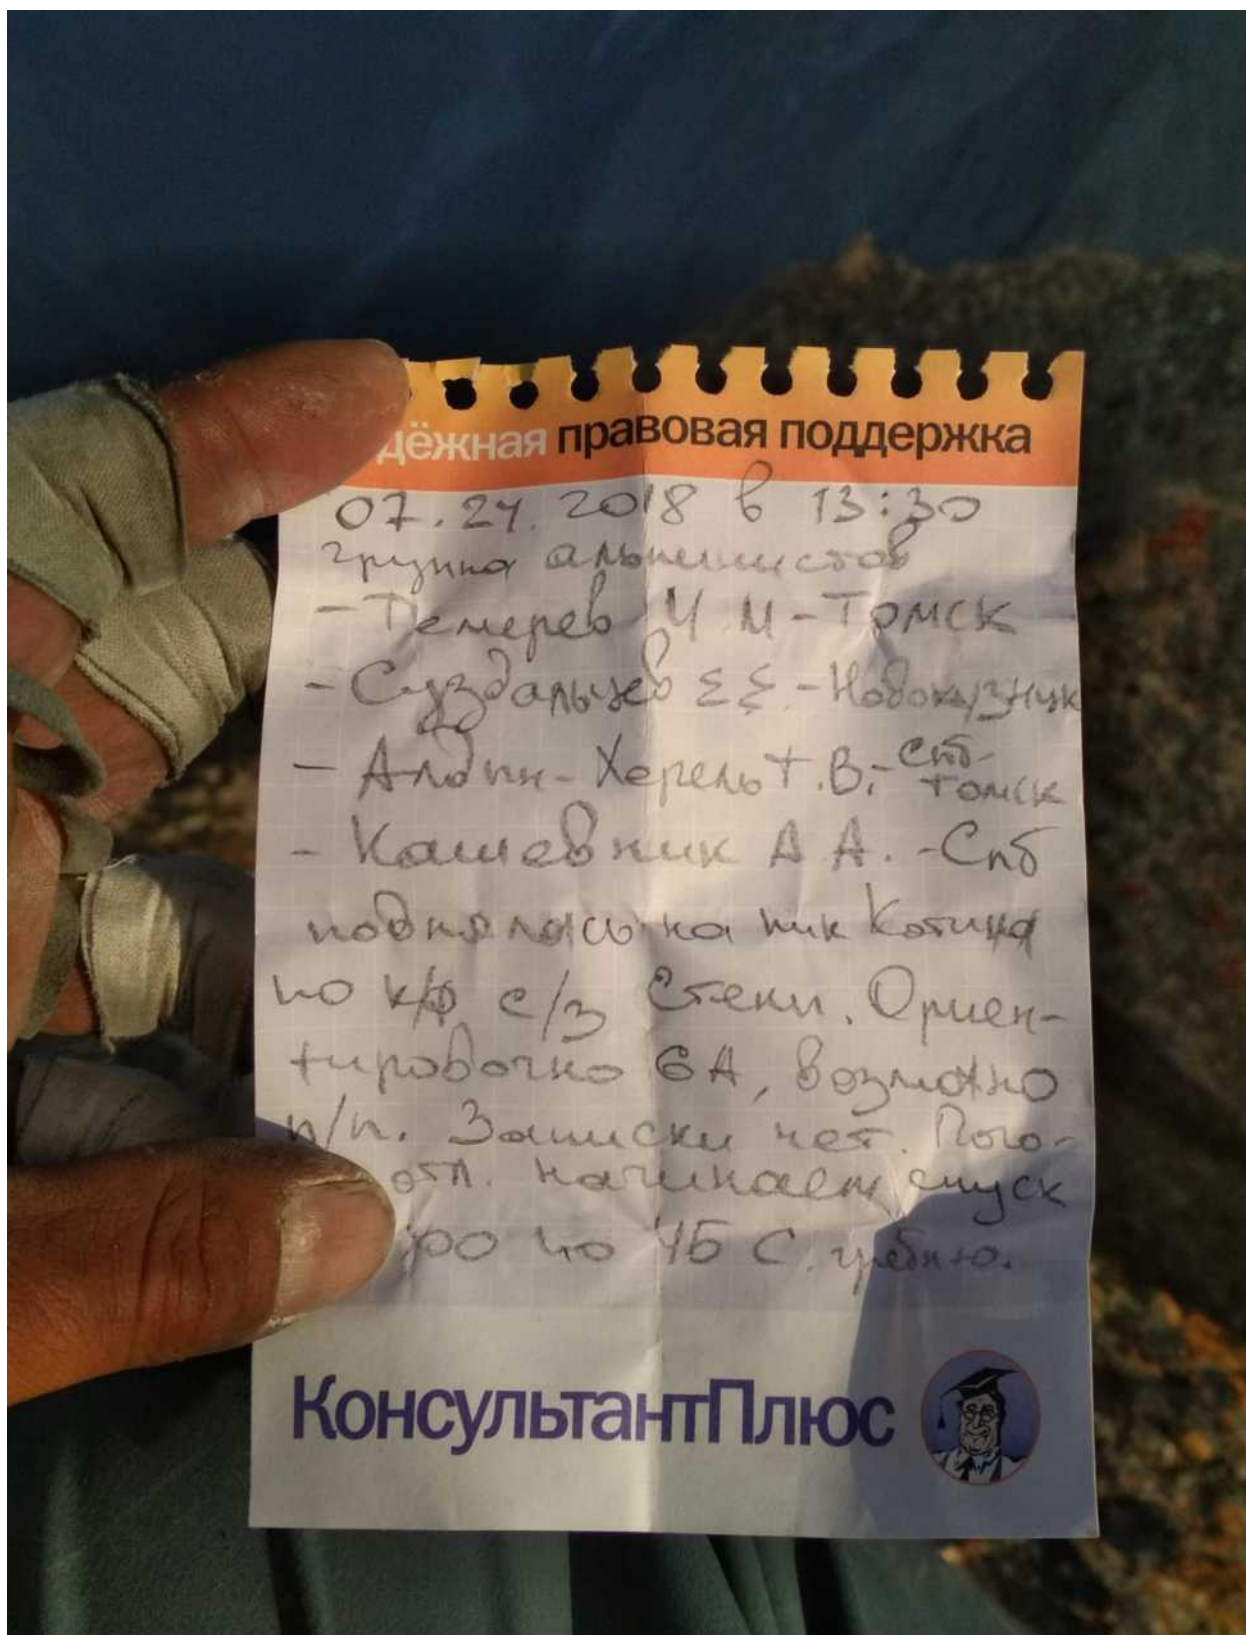 дёжная правовая поддержка
07.24.2018 в 13:30
группа альпинистов
- Темерев И М - Томск
- Суздальцев Е Е. - Новокузнцк
- Алдын-Херель Т.В. - Спб-
Томск
- Кашевник А А. - Спб
поднялась на пик Котина
по к/ф с/з Стены. Ориен-
тировочно 6А, возможно
п/п. Записки нет. Пого-
отл. начинаем спуск
по 4Б С. гребню.
КонсультантПлюс